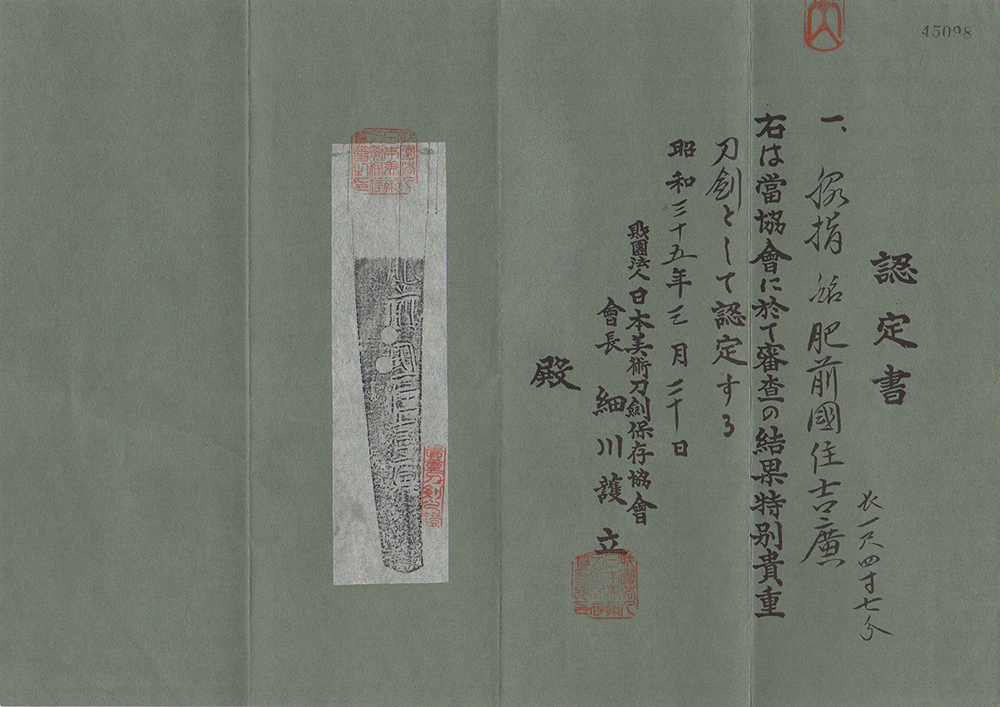 45098
認定書
一、脇指 銘 肥前國住吉廣
長一尺四寸七分
右は當協會に於て審査の結果特別貴重
刀劍として認定する
昭和三十五年三月二十日
財團法人日本美術刀劍保存協會
會長 細川護立
殿
肥前國住吉廣